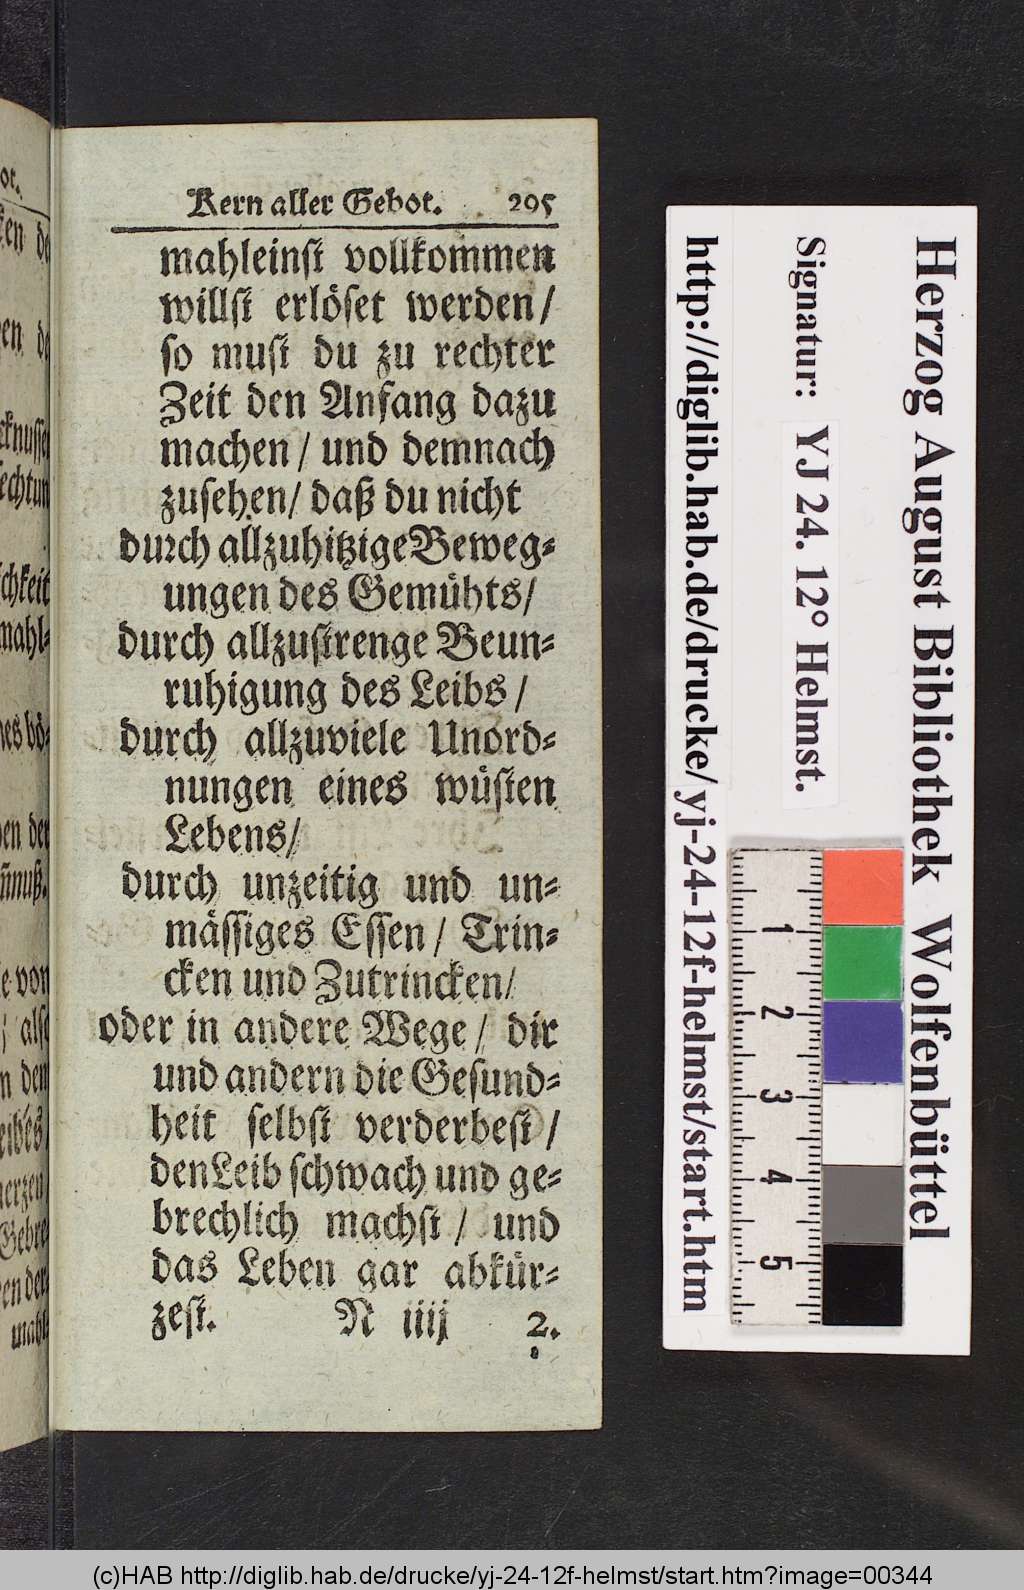 Kern aller Gebot. 295
mahleinst vollkommen
willst erlöset werden/
so must du zu rechter
Zeit den Anfang dazu
machen/ und demnach
zusehen/ daß du nicht
durch allzuhitzige Beweg-
ungen des Gemühts/
durch allzustrenge Beun-
ruhigung des Leibs/
durch allzuviele Unord-
nungen eines wüsten
Lebens/
durch unzeitig und un-
mässiges Essen/ Trin-
cken und Zutrincken/
oder in andere Wege/ dir
und andern die Gesund-
heit selbst verderbest/
den Leib schwach und ge-
brechlich machst/ und
das Leben gar abkür-
zest. N iiij 2.
Herzog August Bibliothek Wolfenbüttel
Signatur: YJ 24. 12° Helmst.
http://diglib.hab.de/drucke/yj-24-12f-helmst/start.htm
1
2
3
4
5
(c)HAB http://diglib.hab.de/drucke/yj-24-12f-helmst/start.htm?image=00344